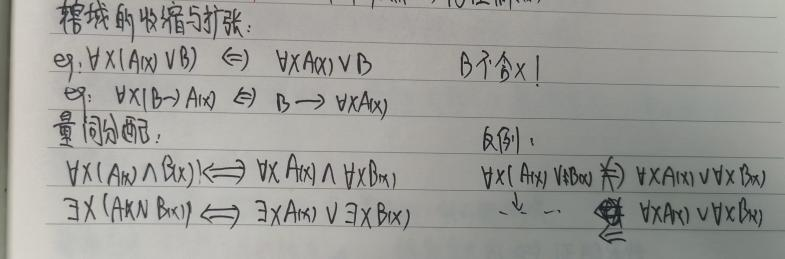 辖域的收缩与扩张:
eg. ∀x(A(x)∨B) ⇔ ∀xA(x)∨B B不含x!
eg: ∀x(B→A(x)) ⇔ B→∀xA(x)
量词分配: 反例:
∀x(A(x)∧B(x)) ⇔ ∀xA(x)∧∀xB(x) ∀x(A(x)∨B(x)) ⇎ ∀xA(x)∨∀xB(x)
∃x(A(x)∨B(x)) ⇔ ∃xA(x)∨∃xB(x) ...↓... ⇐ ∀xA(x)∨∀xB(x)